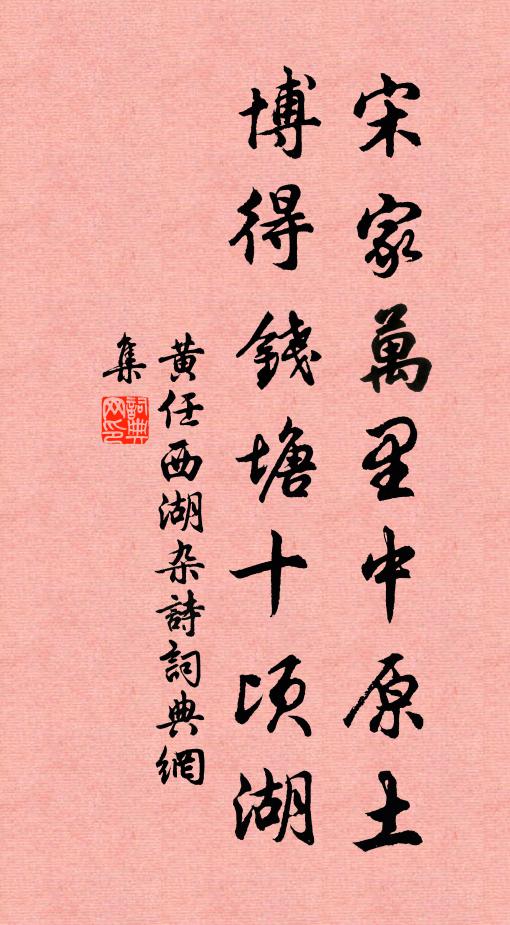 宋家萬里中原土
博得錢塘十頃湖
黄任西湖杂詩詞典網
集
詞典网印